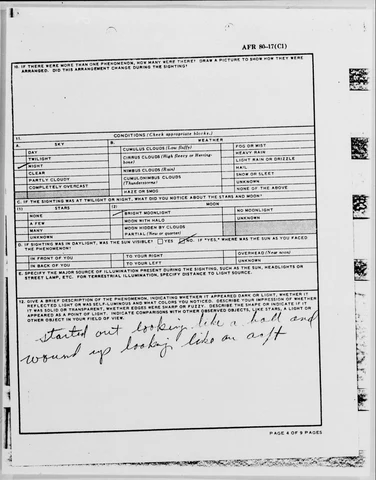 AFR 80-17(C1)
10. IF THERE WERE MORE THAN ONE PHENOMENON, HOW MANY WERE THERE? DRAW A PICTURE TO SHOW HOW THEY WERE
ARRANGED. DID THIS ARRANGEMENT CHANGE DURING THE SIGHTING?
11. CONDITIONS (Check appropriate blocks.)
A. SKY B. WEATHER
DAY CUMULUS CLOUDS (Low fluffy) FOG OR MIST
TWILIGHT CIRRUS CLOUDS (High fleecy or Herring-bone) HEAVY RAIN
NIGHT LIGHT RAIN OR DRIZZLE
CLEAR NIMBUS CLOUDS (Rain) HAIL
PARTLY CLOUDY CUMULONIMBUS CLOUDS (Thunderstorms) SNOW OR SLEET
COMPLETELY OVERCAST UNKNOWN
HAZE OR SMOG NONE OF THE ABOVE
C. IF THE SIGHTING WAS AT TWILIGHT OR NIGHT, WHAT DID YOU NOTICE ABOUT THE STARS AND MOON?
(1) STARS (2) MOON
NONE BRIGHT MOONLIGHT NO MOONLIGHT
A FEW MOON WITH HALO UNKNOWN
MANY MOON HIDDEN BY CLOUDS
UNKNOWN PARTIAL (New or quarter)
D. IF SIGHTING WAS IN DAYLIGHT, WAS THE SUN VISIBLE? YES NO. IF "YES," WHERE WAS THE SUN AS YOU FACED
THE PHENOMENON?
IN FRONT OF YOU TO YOUR RIGHT OVERHEAD (Near noon)
IN BACK OF YOU TO YOUR LEFT UNKNOWN
E. SPECIFY THE MAJOR SOURCE OF ILLUMINATION PRESENT DURING THE SIGHTING, SUCH AS THE SUN, HEADLIGHTS OR
STREET LAMP, ETC. FOR TERRESTRIAL ILLUMINATION, SPECIFY DISTANCE TO LIGHT SOURCE.
12. GIVE A BRIEF DESCRIPTION OF THE PHENOMENON, INDICATING WHETHER IT APPEARED DARK OR LIGHT, WHETHER IT
REFLECTED LIGHT OR WAS SELF-LUMINOUS AND WHAT COLORS YOU NOTICED. DESCRIBE YOUR IMPRESSION OF WHETHER
IT WAS SOLID OR TRANSPARENT, WHETHER EDGES WERE SHARP OR FUZZY. DESCRIBE THE SHAPE OR INDICATE IF IT
APPEARED AS A POINT OF LIGHT. INDICATE COMPARISONS WITH OTHER OBSERVED OBJECTS, LIKE STARS, A LIGHT OR
OTHER OBJECT IN YOUR FIELD OF VIEW.
started out looking like a ball and
wound up looking like an
PAGE 4 OF 9 PAGES